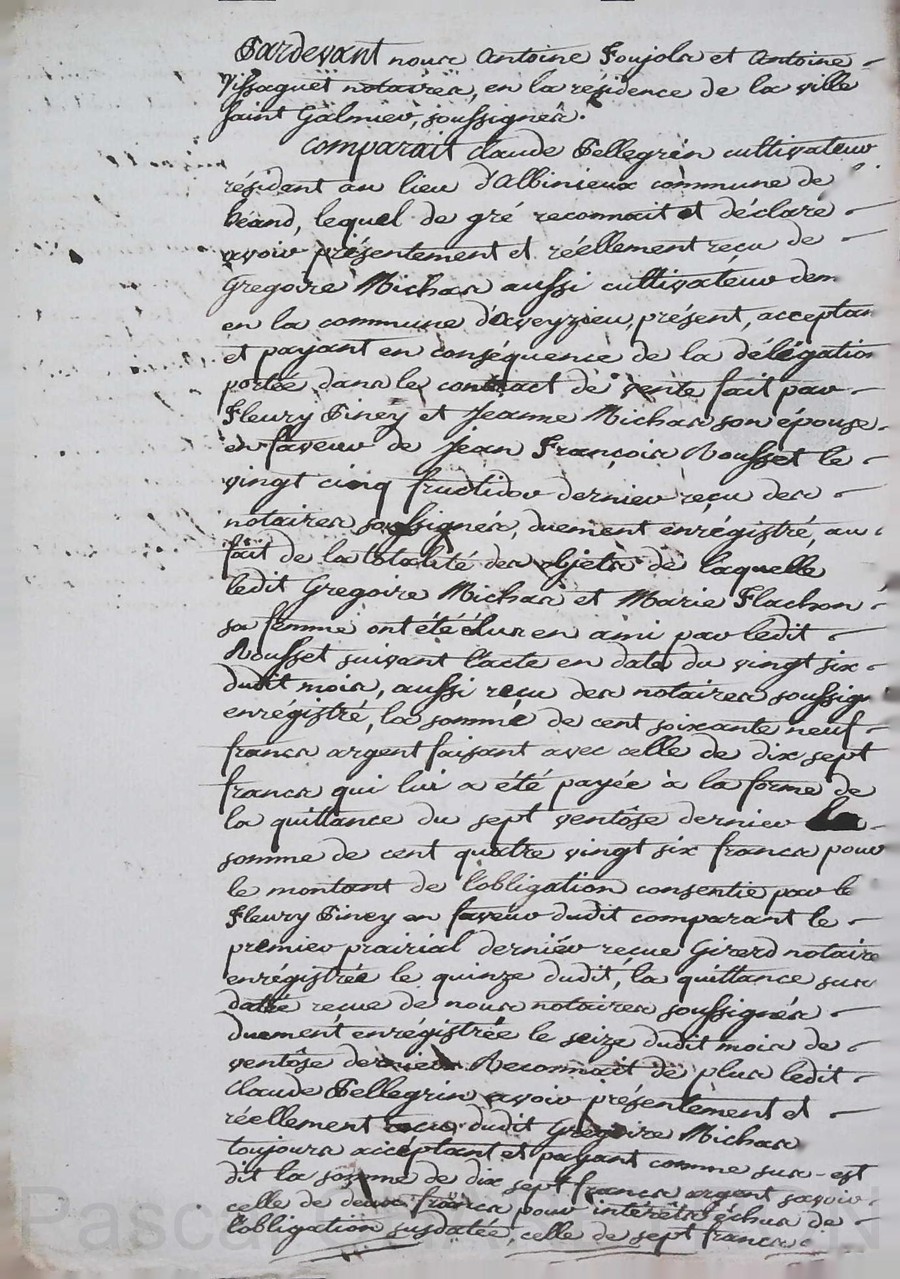 Pardevant nous Antoine Foujols et Antoine
Vissaguet notaires, en la résidence de la ville
Saint Galmier, soussignés.
Comparait Claude Pellegrin cultivateur
résident au lieu d'Albinieux commune de
, lequel de gré reconnait et déclare
avoir présentement et réellement recu de
Gregoire Michas aussi cultivateur dem
en la commune d'aveyzieu, présent, acceptan
et payant en conséquence de la délégation
portée dans le contract de vente fait par
Fleury Piney et Jeanne Michas son épouse
en faveur de Jean François Rousset le
vingt cinq fructidor dernier reçu des
notaires soussignés, duement enrégistré, au
fait de la totalité des objets de laquelle
ledit Gregoire Michas et Marie Flachon
sa femme ont été élus en ami par ledit
Rousset suivant l'acte en date du vingt six
dudit mois, aussi reçu des notaires soussign
enrégistré, la somme de cent soixante neuf
francs argent faisant avec celle de dix sept
francs qui lui a été payée à la forme de
la quittance du sept ventôse dernier la
somme de cent quatre vingt six francs pour
le montant de l'obligation consentie par le
Fleury Piney en faveur dudit comparant le
premier prairial derniér reçue Girerd notaire
enrégistrée le quinze dudit, la quittance sus
datée reçue de nous notaires soussignés
duement enrégistrée le seize dudit mois de
ventôse dernier. Reconnait de plus ledit
Claude Pellegrin avoir présentement et
réellement recu dudit Gregoire Michas
toujours accéptant et payant comme sus est
dit la somme de dix sept francs argent savoir
celle de deux francs pour intérêts échus de
l'obligation susdatée, celle de sept francs
Pascal